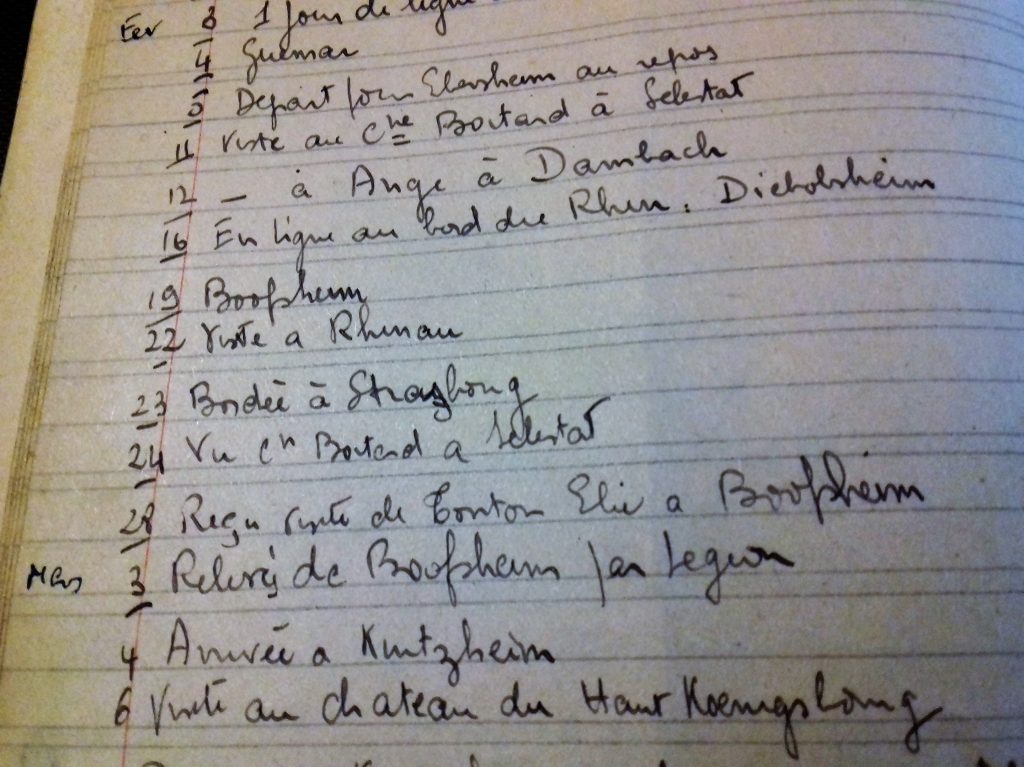 Fev 3 1 jour de ligne
4 Guemar
5 Depart pour Ebersheim au repos
11 Visite au Cne Boutard à Selestat
12 – à Ange à Dambach
16 En ligne au bord du Rhin. Diebolsheim
19 Boofsheim
22 Visite a Rhinau
23 Bordée à Strasbourg
24 Vu Cn Boutard a Selestat
28 Reçu visite de Tonton Elie a Boofsheim
Mars 3 Relevés de Boofsheim par Legion
4 Arrivée a Kintzheim
6 Visite au chateau du Haut Koenigsbourg